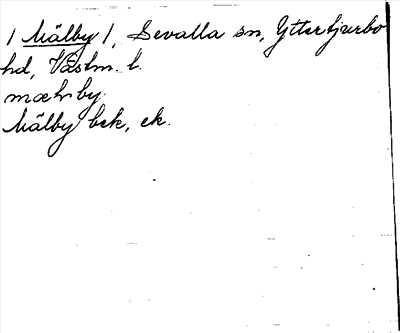 / Mälby /, Sevalla sn, Ytterbjurbo
hd, Västm. l.
mælrby.
Mälby bek, ek.